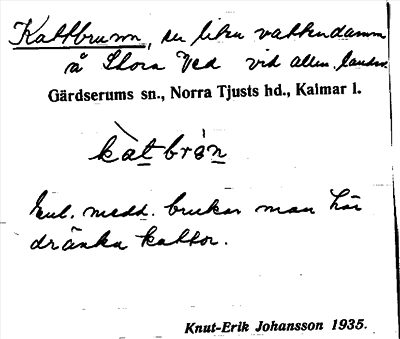 Kattbrunn, en liten vattendamm
å Stora Ved vid allm. landsv.
Gärdserums sn., Norra Tjusts hd., Kalmar l.
kàtbrán
Enl. medd. brukar man här
dränka kattor.
Knut-Erik Johansson 1935.